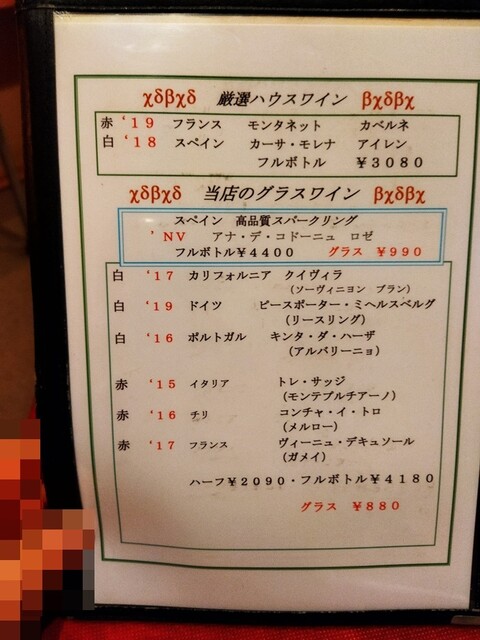 χδβχδ 厳選ハウスワイン βχδβχ
赤 '19 フランス モンタネット カベルネ
白 '18 スペイン カーサ・モレナ アイレン
フルボトル ¥3080
χδβχδ 当店のグラスワイン βχδβχ
スペイン 高品質スパークリング
'NV アナ・デ・コドーニュ ロゼ
フルボトル¥4400 グラス ¥990
白 '17 カリフォルニア クイヴィラ
(ソーヴィニヨン ブラン)
白 '19 ドイツ ピースポーター・ミヘルスベルグ
(リースリング)
白 '16 ポルトガル キンタ・ダ・ハーザ
(アルバリーニョ)
赤 '15 イタリア トレ・サッジ
(モンテプルチアーノ)
赤 '16 チリ コンチャ・イ・トロ
(メルロー)
赤 '17 フランス ヴィーニュ・デキュソール
(ガメイ)
ハーフ¥2090・フルボトル¥4180
グラス ¥880